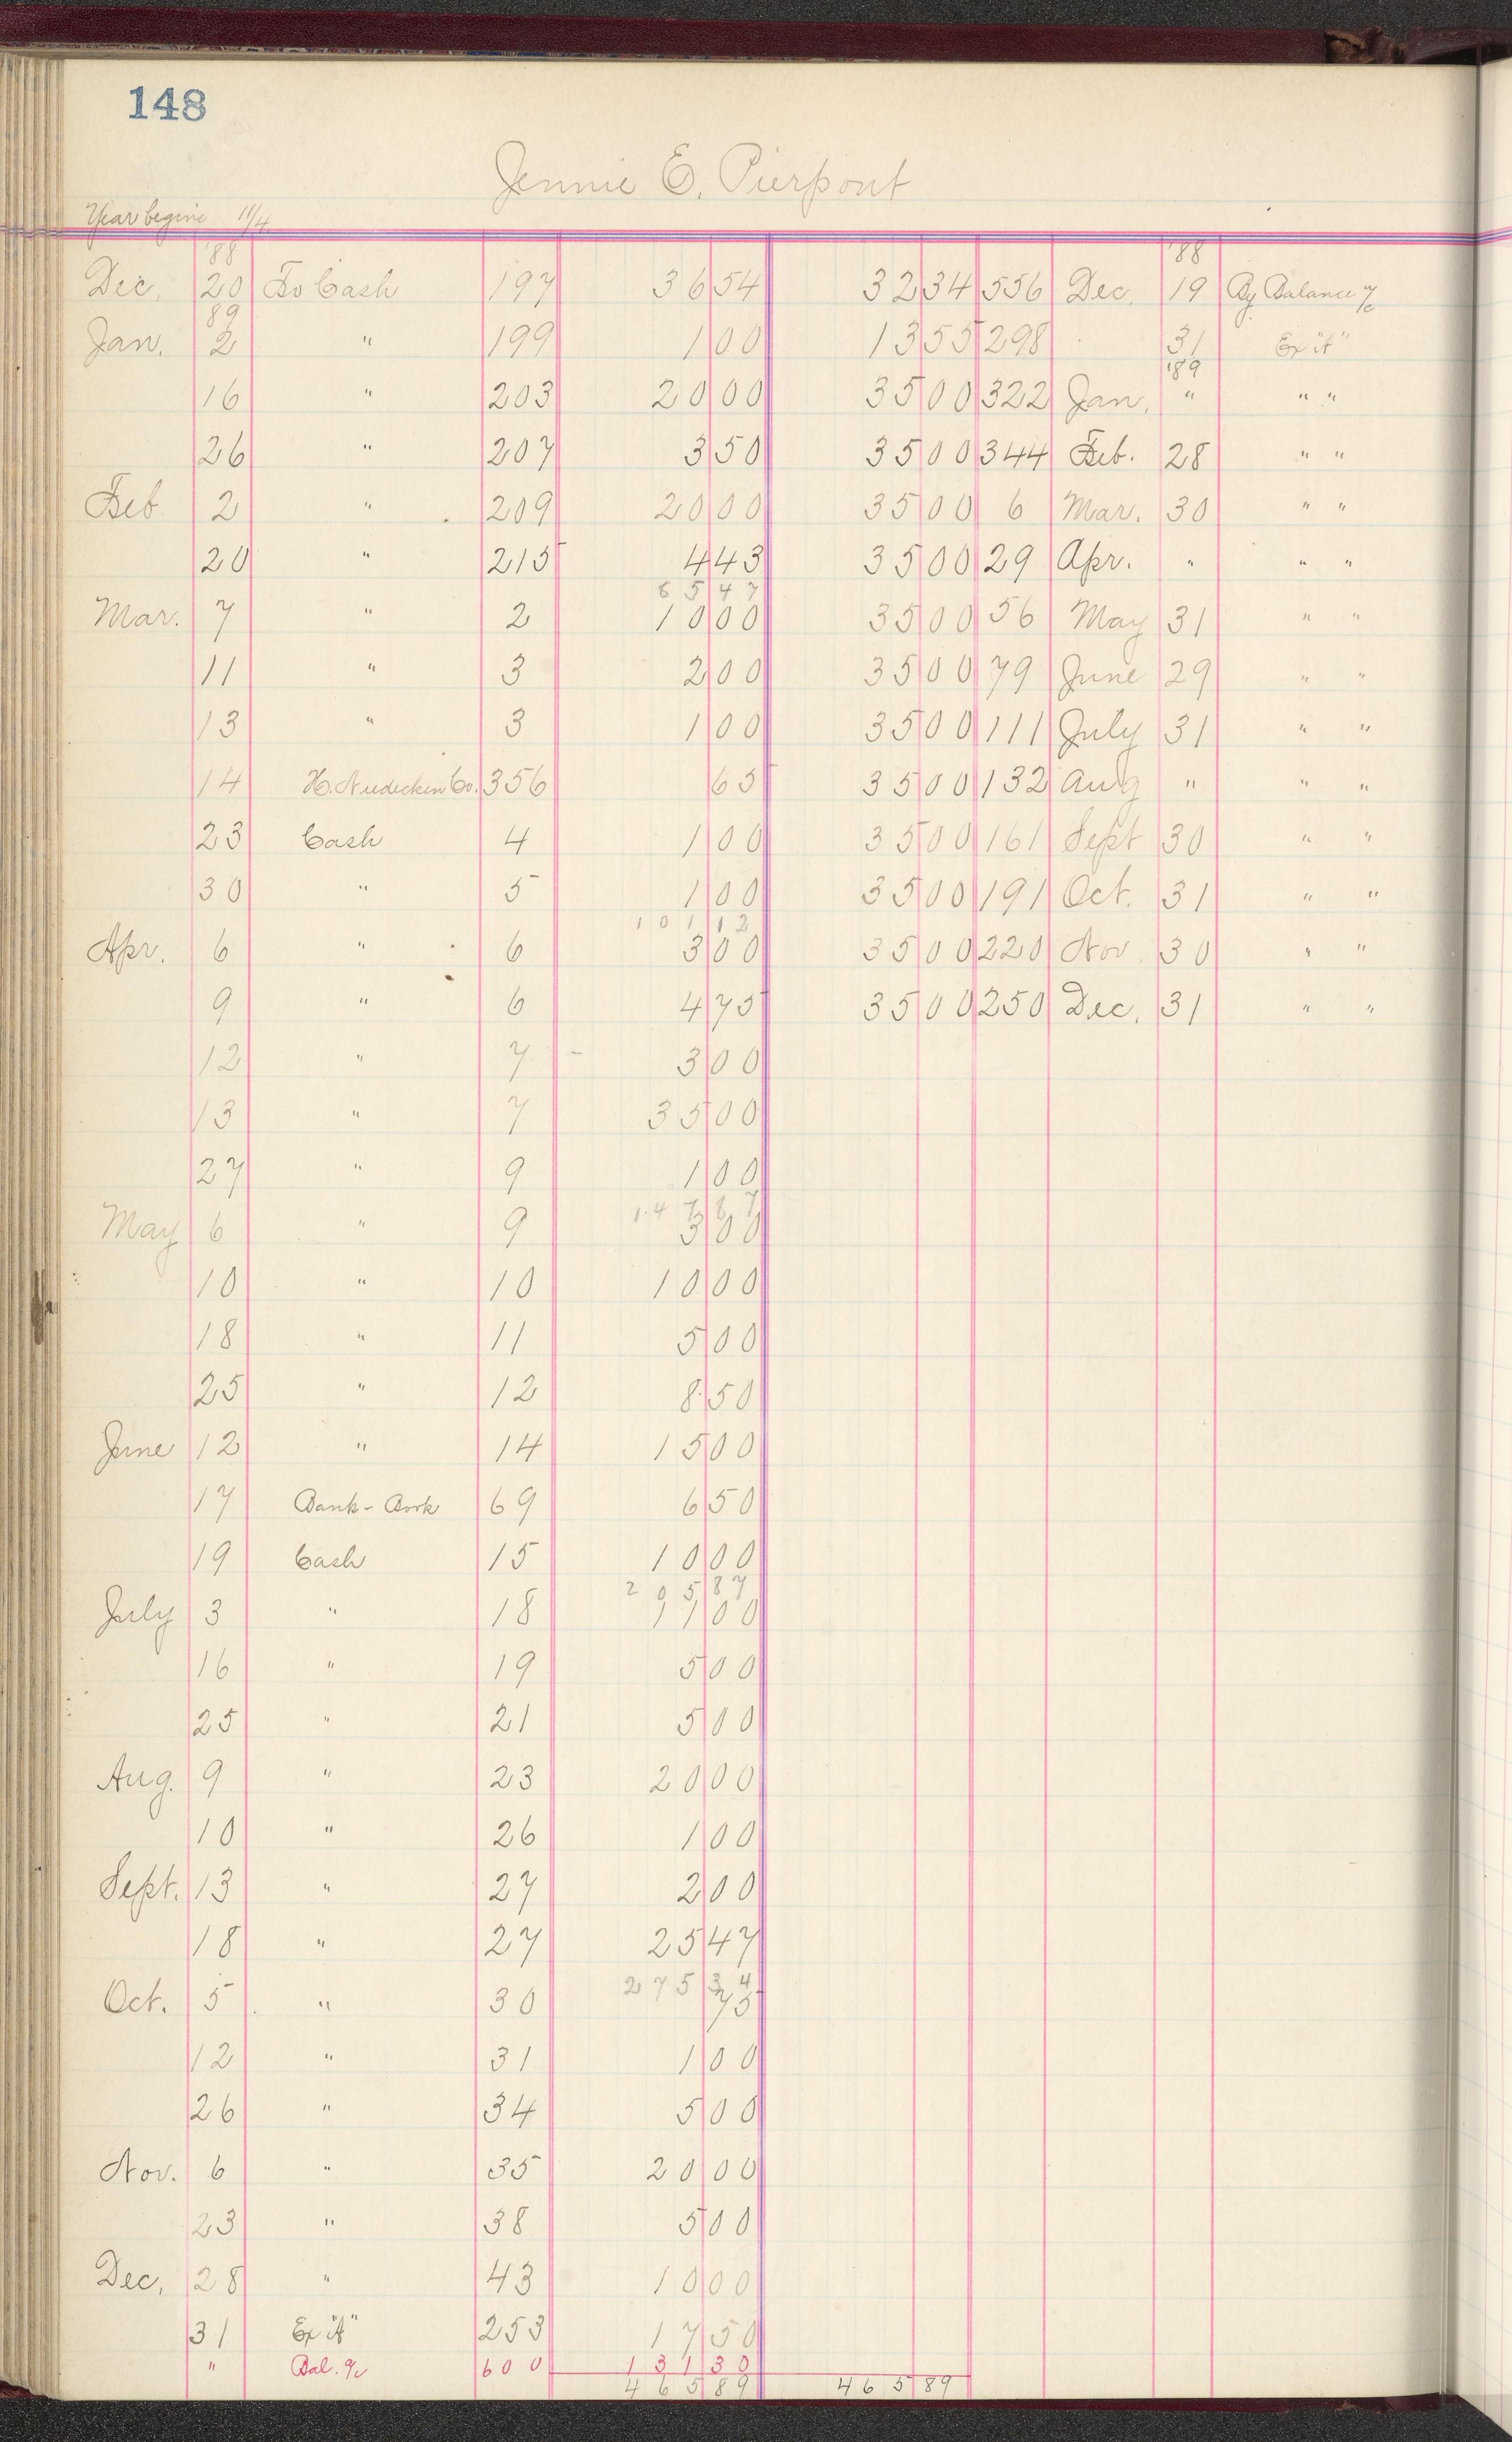 148
Jennie E. Pierpont
Year begins 11/4
'88 '88
Dec. 20 To Cash 197 36 54 32 34 556 Dec. 19 By Balance a/c
89
Jan. 2 " 199 1 00 13 55 298 31 Ex "A"
'89
16 " 203 20 00 35 00 322 Jan. " " "
26 " 207 3 50 35 00 344 Feb. 28 " "
Feb. 2 " 209 20 00 35 00 6 Mar. 30 " "
20 " 215 4 43 35 00 29 Apr. " " "
8 5 4 7
Mar. 7 " 2 10 00 35 00 56 May 31 " "
11 " 3 2 00 35 00 79 June 29 " "
13 " 3 1 00 35 00 111 July 31 " "
14 H. Niedecken Co. 356 65 35 00 132 Aug " " "
23 Cash 4 1 00 35 00 161 Sept 30 " "
30 " 5 1 00 35 00 191 Oct. 31 " "
1 0 1 1 2
Apr. 6 " 6 3 00 35 00 220 Nov. 30 " "
9 " 6 4 75 35 00 250 Dec. 31 " "
12 " 7 3 00
13 " 7 35 00
27 " 9 1 00
1 4 7 8 7
May 6 " 9 3 00
10 " 10 10 00
18 " 11 5 00
25 " 12 8 50
June 12 " 14 15 00
17 Bank-Book 69 6 50
19 Cash 15 10 00
2 0 5 8 7
July 3 " 18 11 00
16 " 19 5 00
25 " 21 5 00
Aug. 9 " 23 20 00
10 " 26 1 00
Sept. 13 " 27 2 00
18 " 27 25 47
2 7 5 3 4
Oct. 5 " 30 75
12 " 31 1 00
26 " 34 5 00
Nov. 6 " 35 20 00
23 " 38 5 00
Dec. 28 " 43 10 00
31 Ex "A" 253 17 50
" Bal. a/c 600 131 30
465 89 465 89